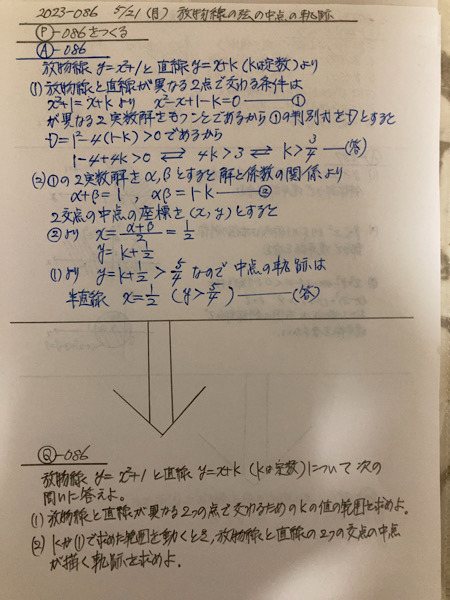 2023-086 5/21(月) 放物線の弦の中点の軌跡
Ⓟ-086をつくる
Ⓐ-086
放物線 y=x²+1 と直線 y=x+k (kは定数) より
(1) 放物線と直線が異なる2点で交わる条件は
x²+1=x+k より x²-x+1-k=0 ——①
が異なる2実数解をもつことであるから①の判別式をDとすると
D=1²-4(1-k)>0 であるから
1-4+4k>0 ⇄ 4k>3 ⇄ k>3/4 —(答)
(2) ①の2実数解をα,βとすると解と係数の関係より
α+β=1 , αβ=1-k ——②
2交点の中点の座標を(x,y)とすると
②より x=(α+β)/2=1/2
y=k+1/2
(1)より y=k+1/2>5/4 なので 中点の軌跡は
半直線 x=1/2 (y>5/4) ——(答)
Ⓠ-086
放物線 y=x²+1 と直線 y=x+k (kは定数) について次の
問いに答えよ。
(1) 放物線と直線が異なる2つの点で交わるためのkの値の範囲を求めよ.
(2) kが(1)で求めた範囲を動くとき,放物線と直線の2つの交点の中点
が描く軌跡を求めよ.